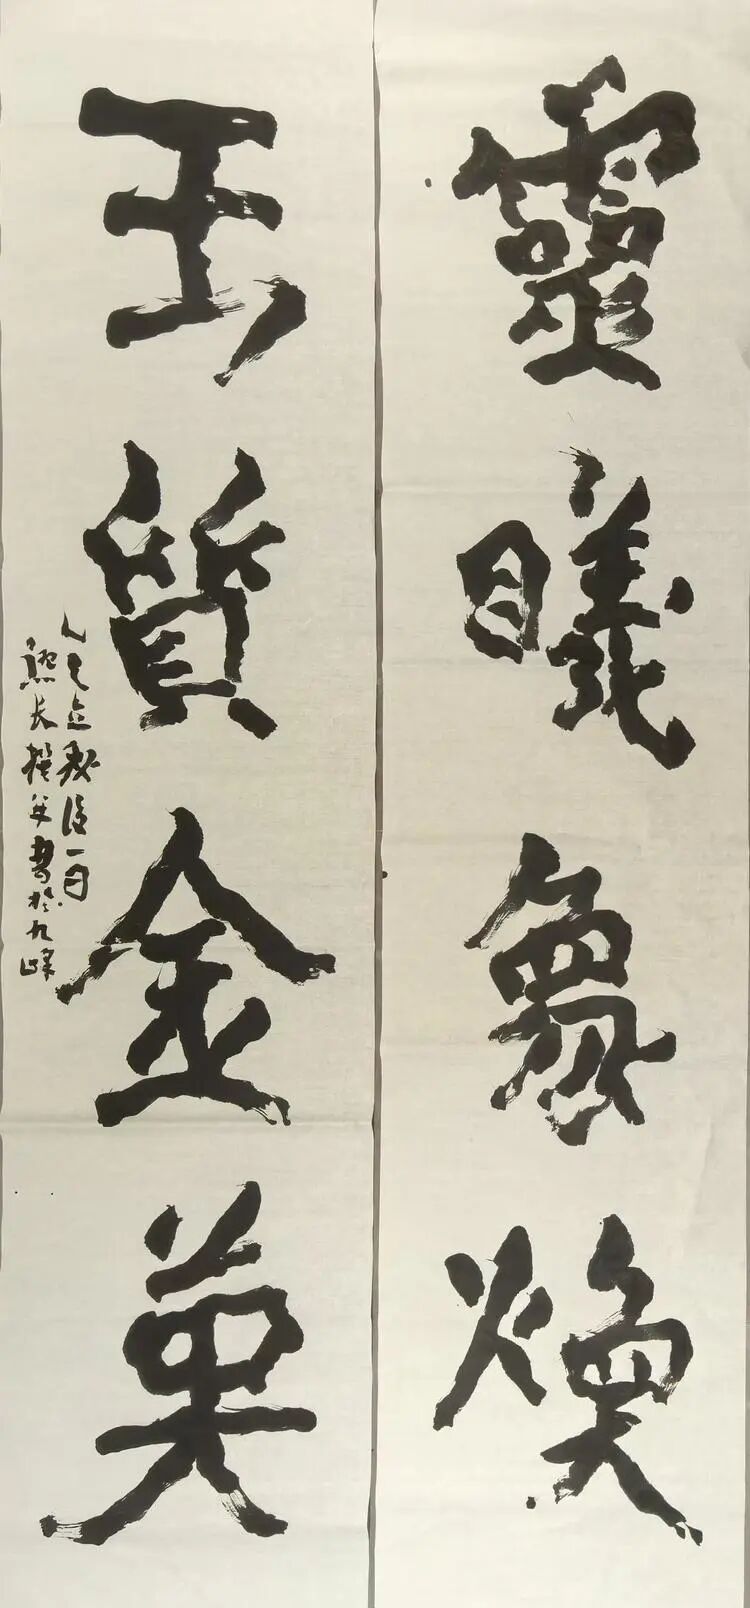 靈曦象煥
玉質金英
乙巳立秋後一日
長撰并書於九峰